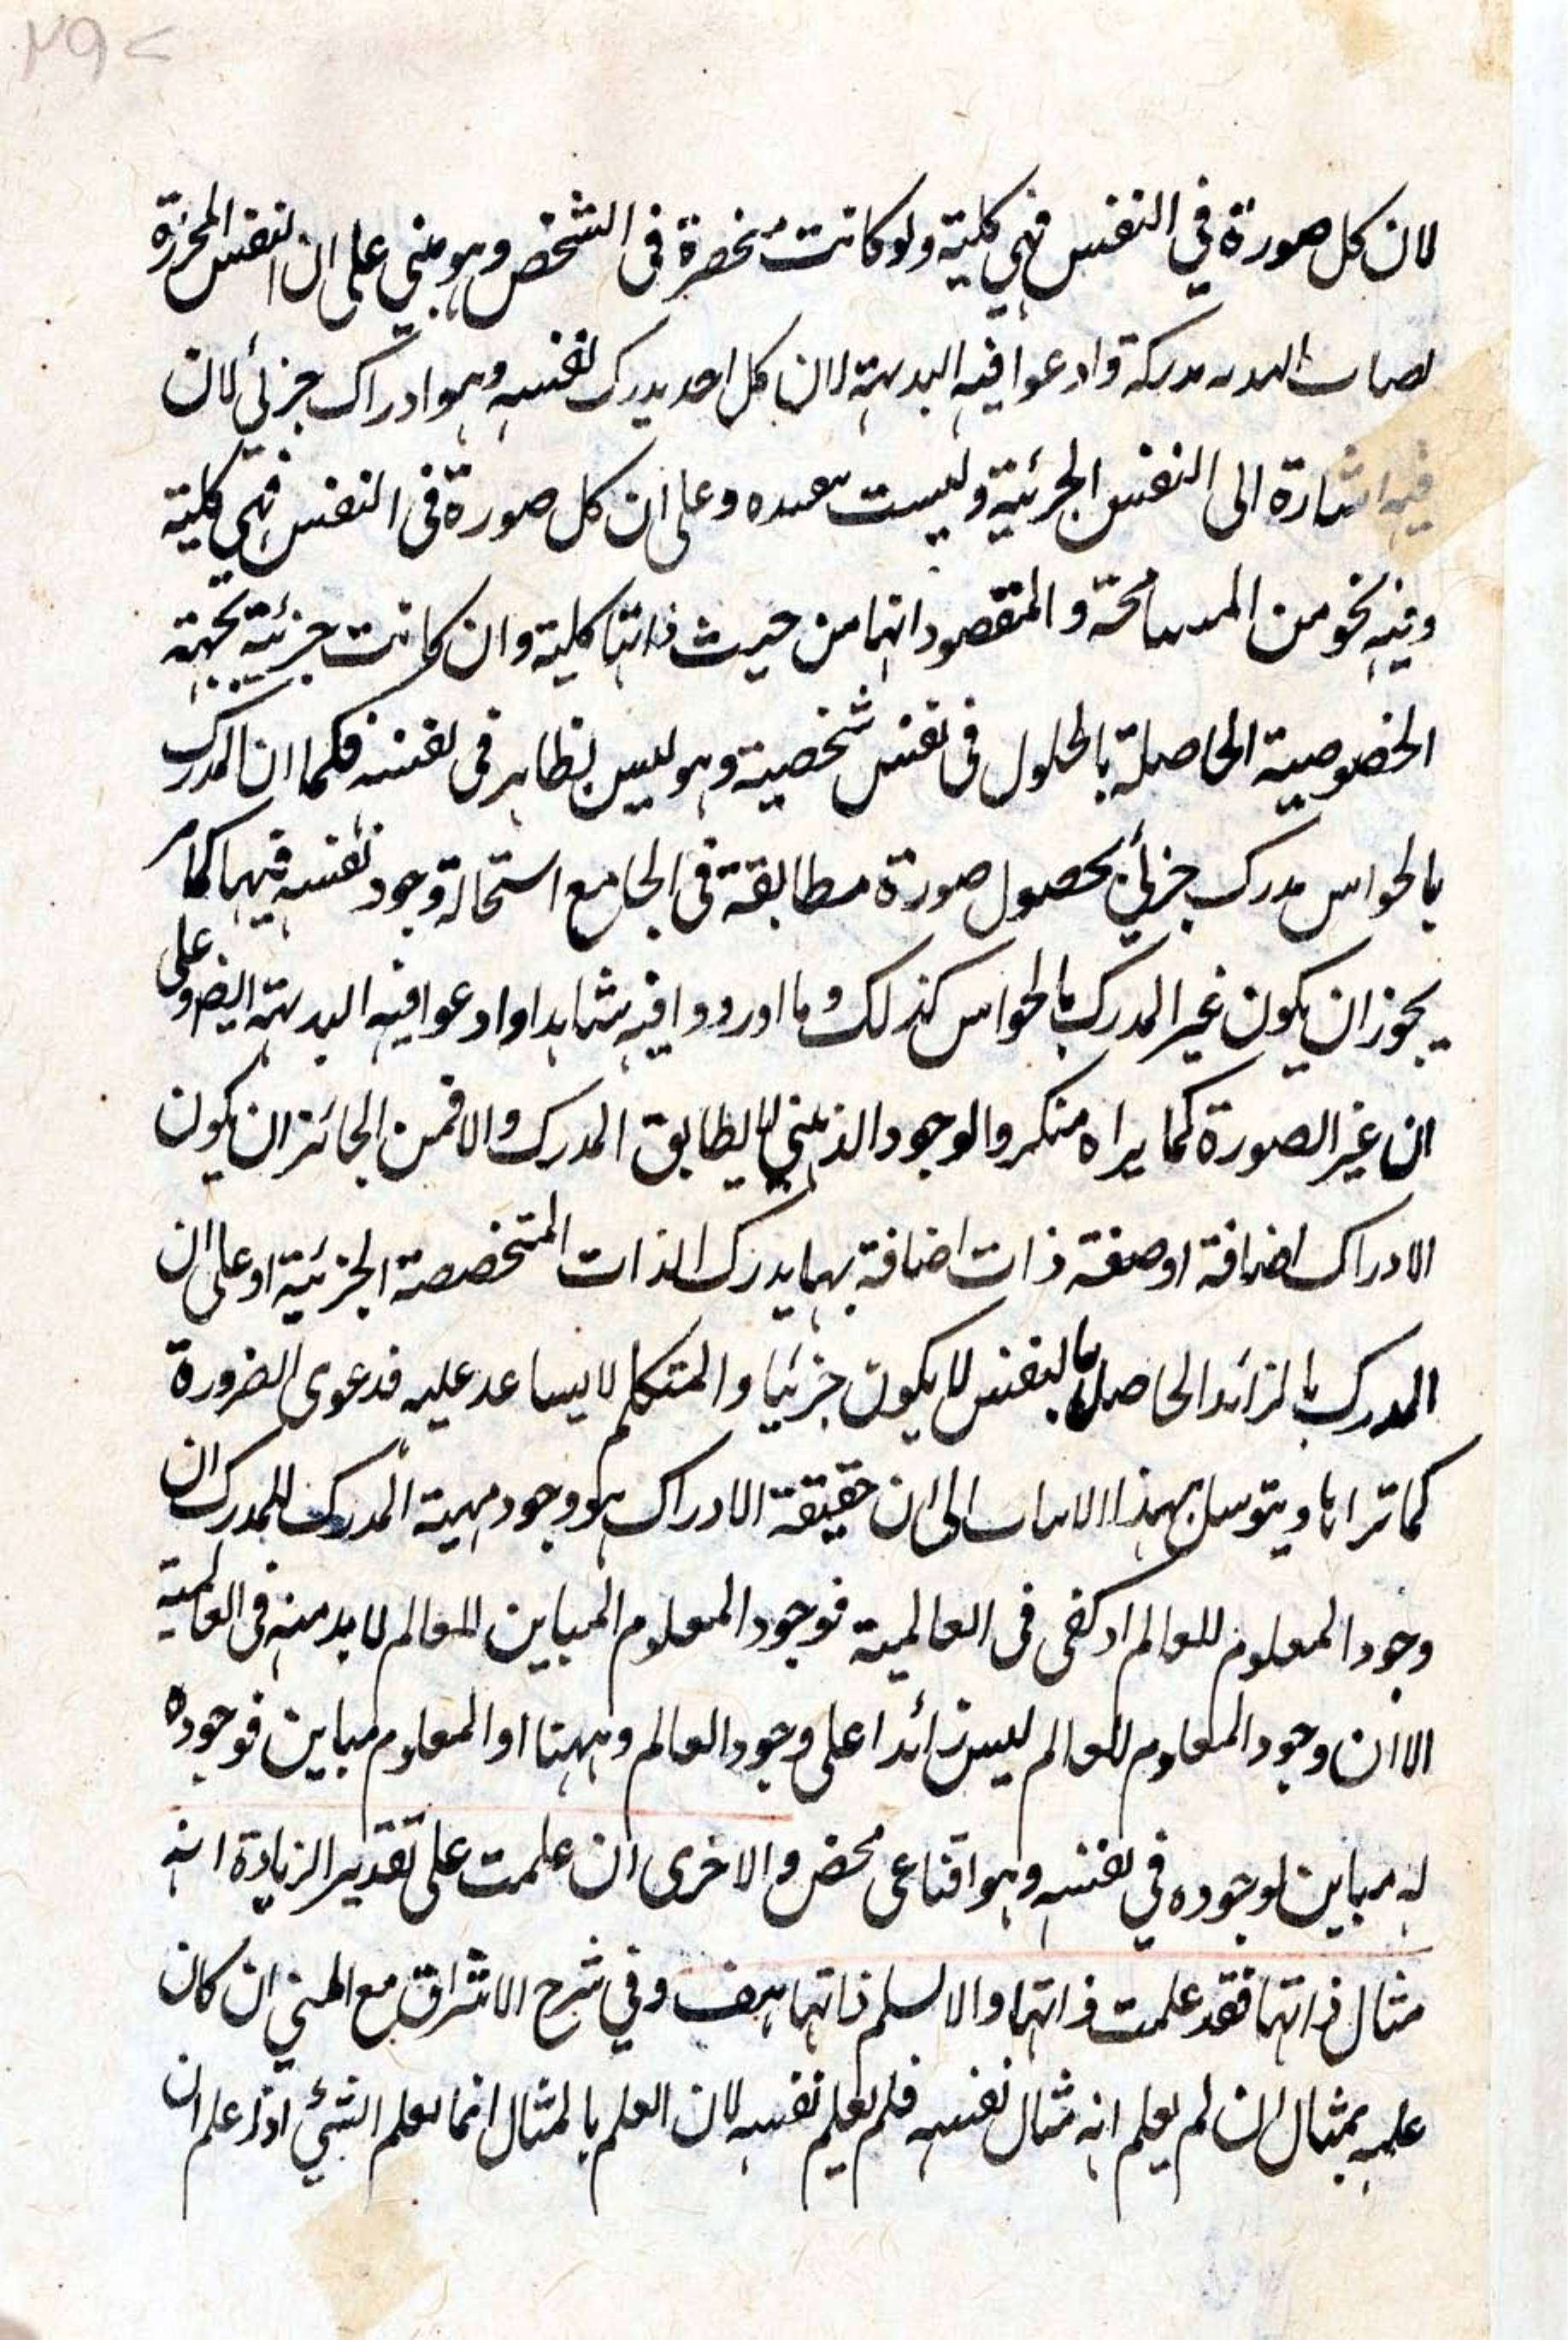 لان كل صورة في النفس فهي كلية ولو كانت منحصرة في الشخص وهو مبني على ان النفس المجردة
مدركة وادعوا فيه البديهة لان كل احد يدرك نفسه وهو ادراك جزئي لان
فيه اشارة الى النفس الجزئية وليست وعلى ان كل صورة في النفس فهي كلية
وفيه نحو من المسامحة والمقصود انها من حيث ذاتها كلية وان كانت جزئية بجهة
الخصوصية الحاصلة بالحلول في نفس شخصية وهو ليس بظاهر في نفسه فكما ان المدرك
بالحواس مدرك جزئي بحصول صورة مطابقة في الجامع استحالة وجود نفسه فيها كما مر
يجوز ان يكون غير المدرك بالحواس كذلك وما اوردوا فيه شاهدا وادعوا فيه البديهة ايضا وعلى
ان غير الصورة كما يراه منكروا الوجود الذهني لا يطابق المدرك والا فمن الجائز ان يكون
الادراك اضافة او صفة ذات اضافة بها يدرك الذات المتخصصة الجزئية او على ان
المدرك بالزائد الحاصل بالنفس لا يكون جزئيا والمتكلم لا يساعد عليه فدعوى الضرورة
كما تراها ويتوسل بهذا الى ان حقيقة الادراك هو وجود مهية المدرك للمدرك ان
وجود المعلوم للعالم اذ كفى في العالمية فوجود المعلوم المباين للعالم لا بد منه في العالمية
الا ان وجود المعلوم للعالم ليس زائدا على وجود العالم وههنا او المعلوم مباين فوجوده
له مباين لوجوده في نفسه وهو اقناعي محض والاخرى ان علمت على تقدير الزيادة انه
مثال ذاتها فقد علمت ذاتها والا لم ذاتها هف وفي شرح الاشراق مع المتن ان كان
علمه بمثال ان لم يعلم انه مثال نفسه فلم يعلم نفسه لان العلم بالمثال انما يعلم الشيء اذا علم ان